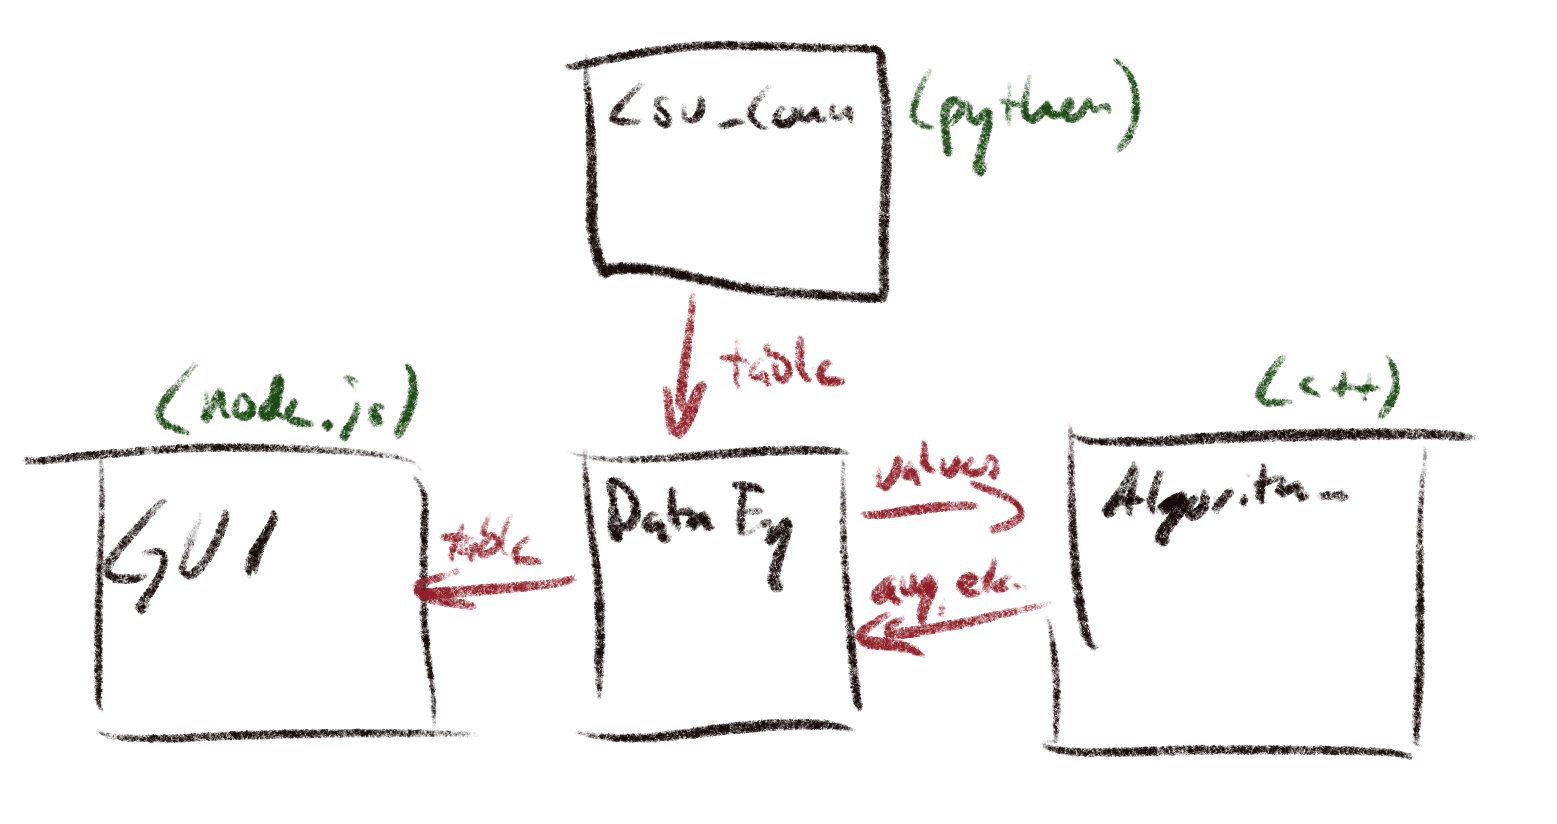 csv_conn
(python)
table
(node.js)
(c++)
GUI
table
Data Eng
values
avg, etc.
Algorithm